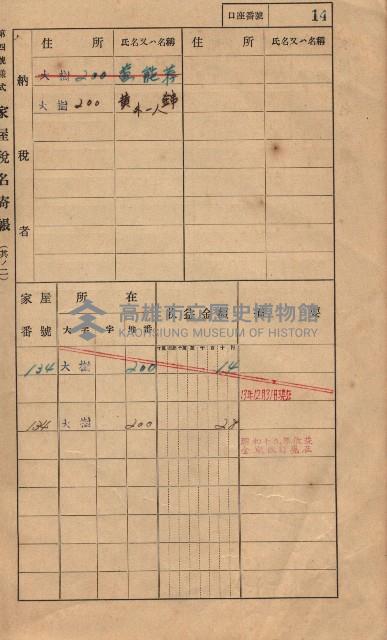 口座番號 14
第四號樣式 家屋稅名寄帳 (其ノ二)
納稅者
住所 氏名又ハ名稱 住所 氏名又ハ名稱
大樹 200
大樹 200 黃 外一人
家屋番號 所在 大字 字 地番 賃貸金額
134 大樹 200 14
13年12月31日現在
134 大樹 200 28
高雄市立歷史博物館
KAOHSIUNG MUSEUM OF HISTORY